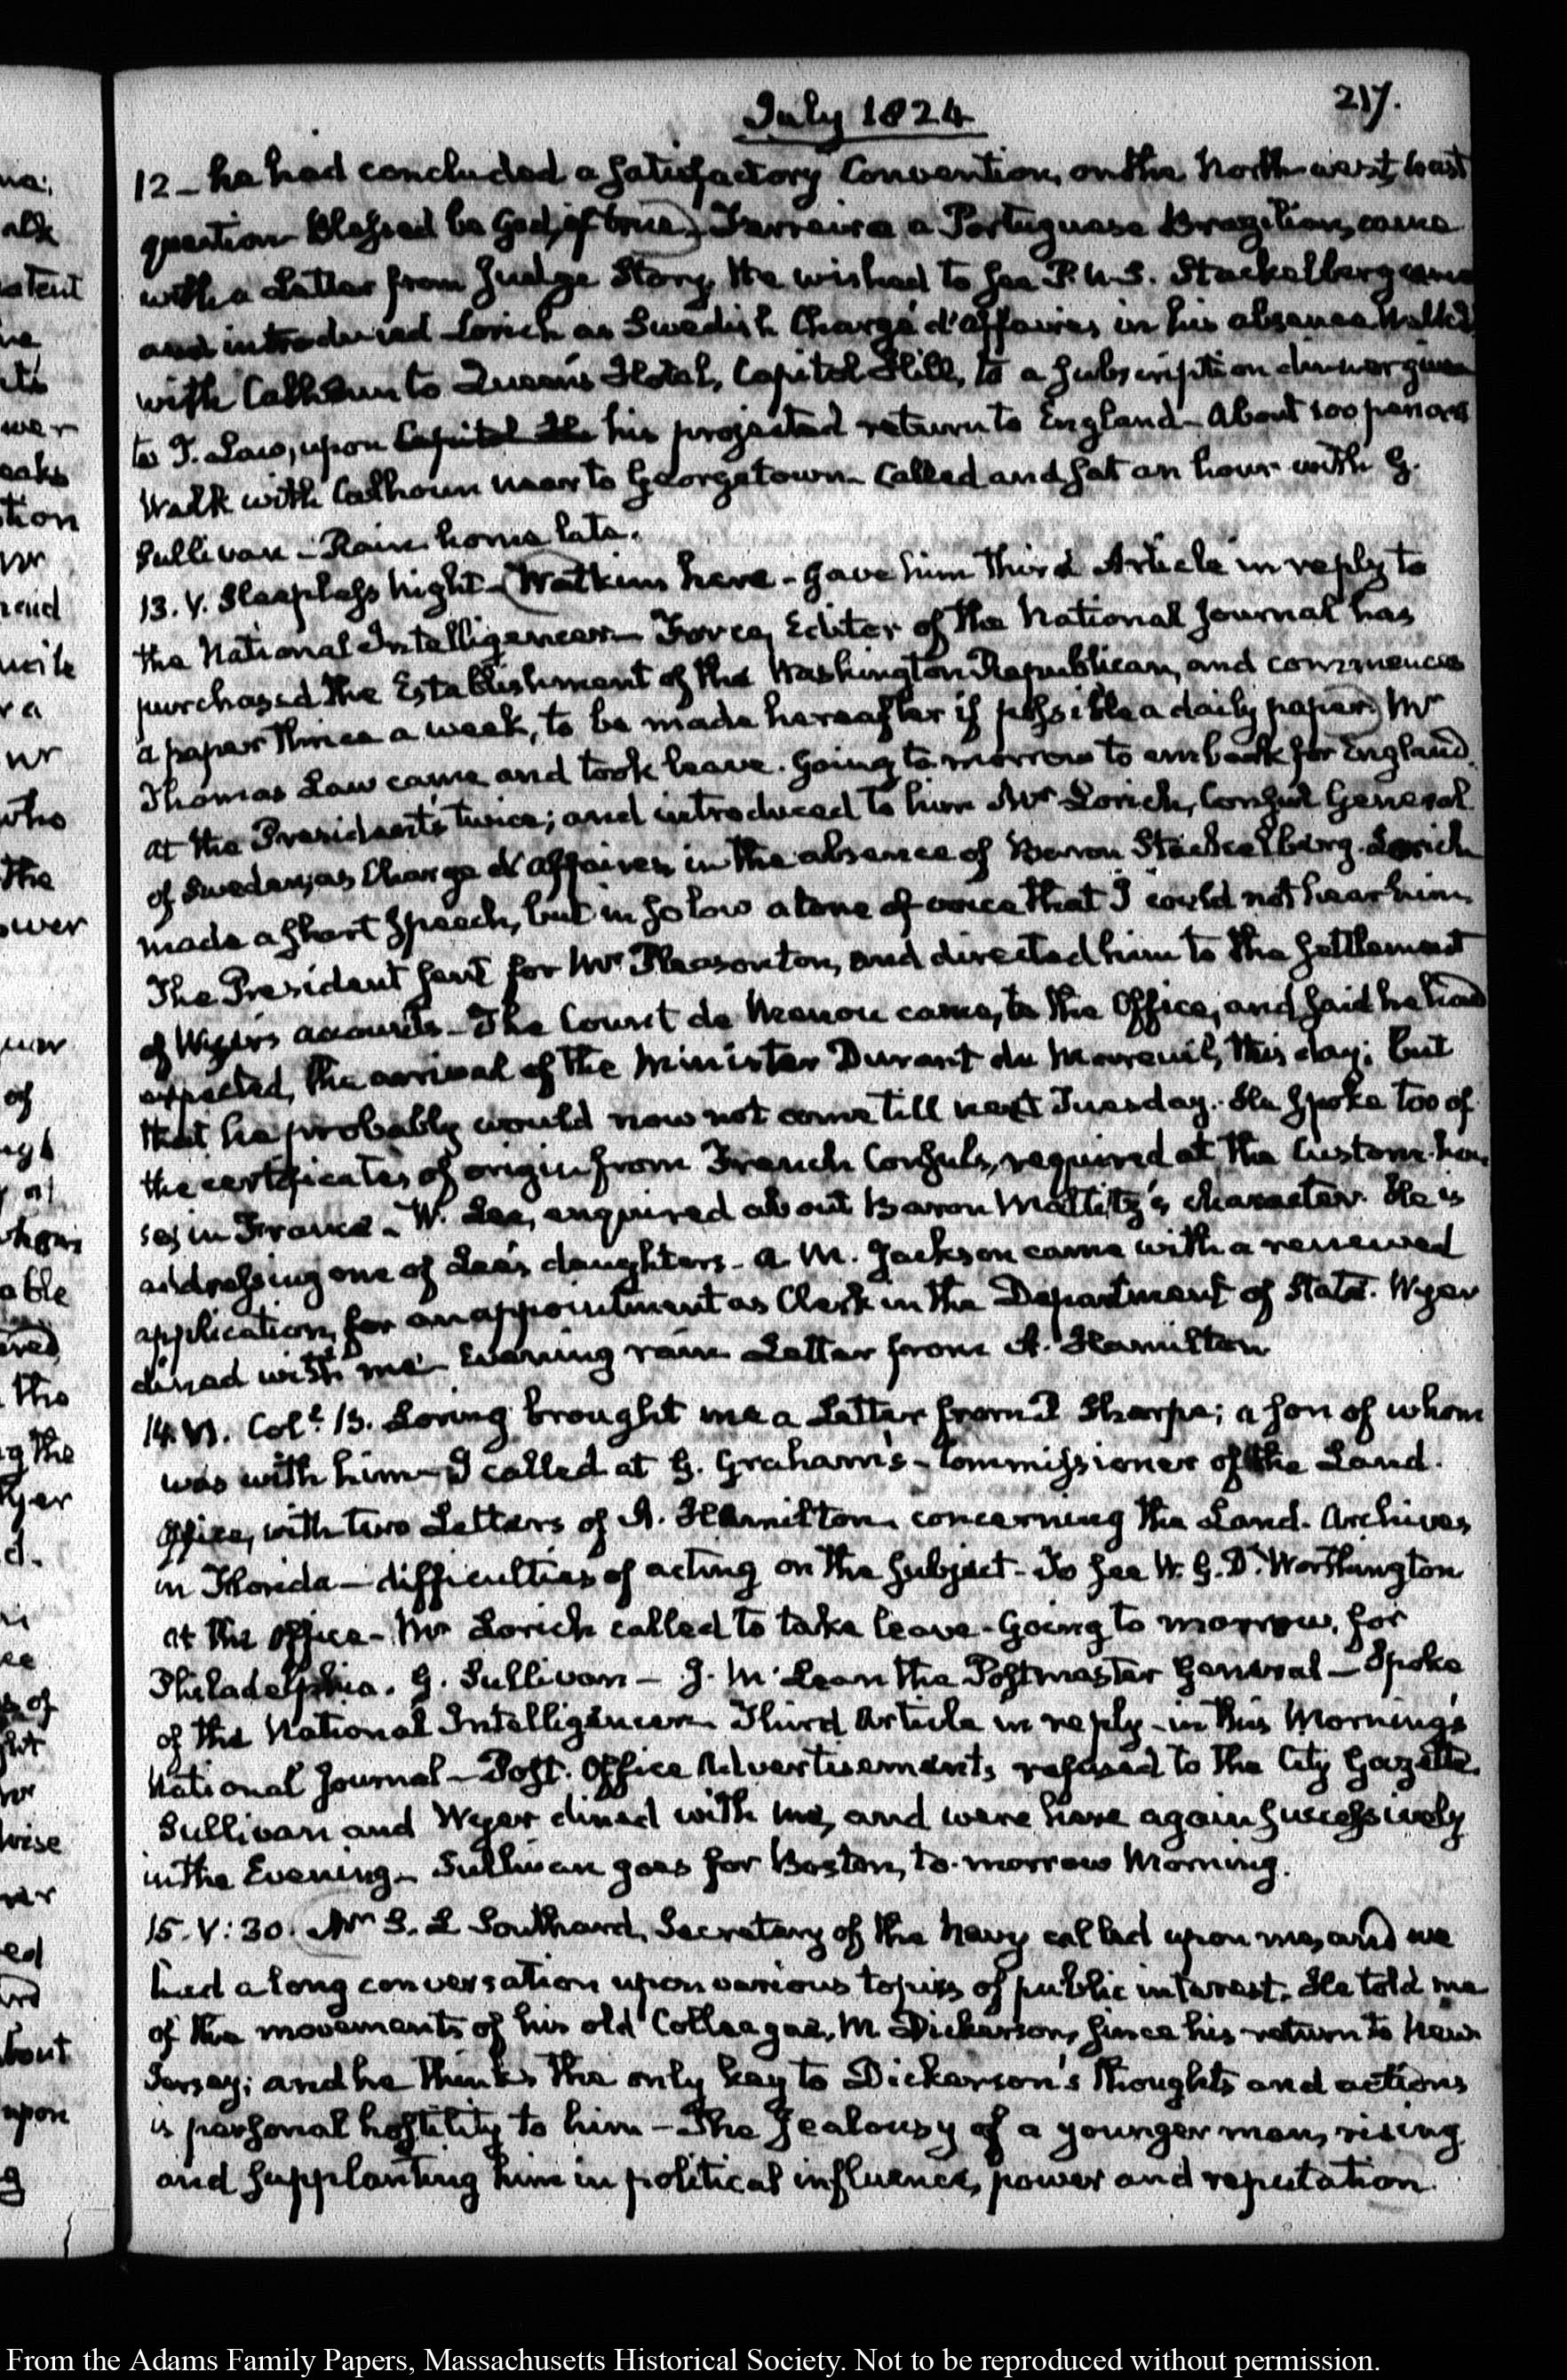 217.
July 1824
12 – he had concluded a satisfactory Convention, on the North-west coast
question. Blessed be God, if true. Ferreira a Portuguese Brazilian, came
with a Letter from Judge Story. He wished to see P.U.S. Stackelberg came
and introduced Lorich as Swedish Chargé d'affaires in his absence. Walked
with Calhoun to Queen's Hotel, Capitol Hill, to a subscription dinner given
to T. Law, upon Capitol his projected return to England – About 100 persons
Walk with Calhoun near to Georgetown – Called and sat an hour with G.
Sullivan – Rain home late.
13. V. Sleepless night – Watkins here – gave him third Article in reply to
the National Intelligencer – Force, Editor of the National Journal has
purchased the Establishment of the Washington Republican, and commences
a paper thrice a week, to be made hereafter if possible a daily paper. Mr
Thomas Law came and took leave. Going to-morrow to embark for England.
At the President's twice; and introduced to him Mr Lorich, Consul General
of Sweden, as Charge d'affaires in the absence of Baron Stackelberg. Lorich
made a short Speech, but in so low a tone of voice that I could not hear him.
The President sent for Mr Pleasonton, and directed him to the settlement
of Wyer's accounts – The Count de Menou came, to the Office, and said he had
expected, the arrival of the Minister Durant de Mareuil, this day; but
that he probably would now not come till next Tuesday. He spoke too of
the certificates of origin from French Consuls, required at the Custom-hou-
ses in France – W. Lee, enquired about Baron Maltitz's character. He is
addressing one of Lee's daughters – a M. Jackson came with a renewed
application, for an appointment as Clerk in the Department of State. Wyer
dined with me. Evening rain. Letter from A. Hamilton
14. VI. Colt. B. Loring brought me a Letter from P Sharpe; a son of whom
was with him – I called at G. Graham's – Commissioner of the Land.
Office, with two Letters of A. Hamilton concerning the Land. Archives
in Florida – difficulties of acting on the subject – To see W. G. D. Worthington
at the office – Mr Lorich called to take leave – Going to morrow, for
Philadelphia. G. Sullivan – J. McLean the Postmaster General – Spoke
of the National Intelligencer. Third Article in reply – in this Morning's
National Journal – Post. Office Advertisements refused to the City Gazette.
Sullivan and Wyer dined with me, and were here again successively
in the Evening – Sullivan goes for Boston, to-morrow Morning.
15. V: 30. Mr S. L Southard, Secretary of the Navy called upon me, and we
had a long conversation upon various topics of public interest. He told me
of the movements of his old Colleague, M Dickerson, since his return to New
Jersey; and he thinks the only key to Dickerson's thoughts and actions
is personal hostility to him – The Jealousy of a younger man, rising
and supplanting him in political influence, power and reputation.
From the Adams Family Papers, Massachusetts Historical Society. Not to be reproduced without permission.